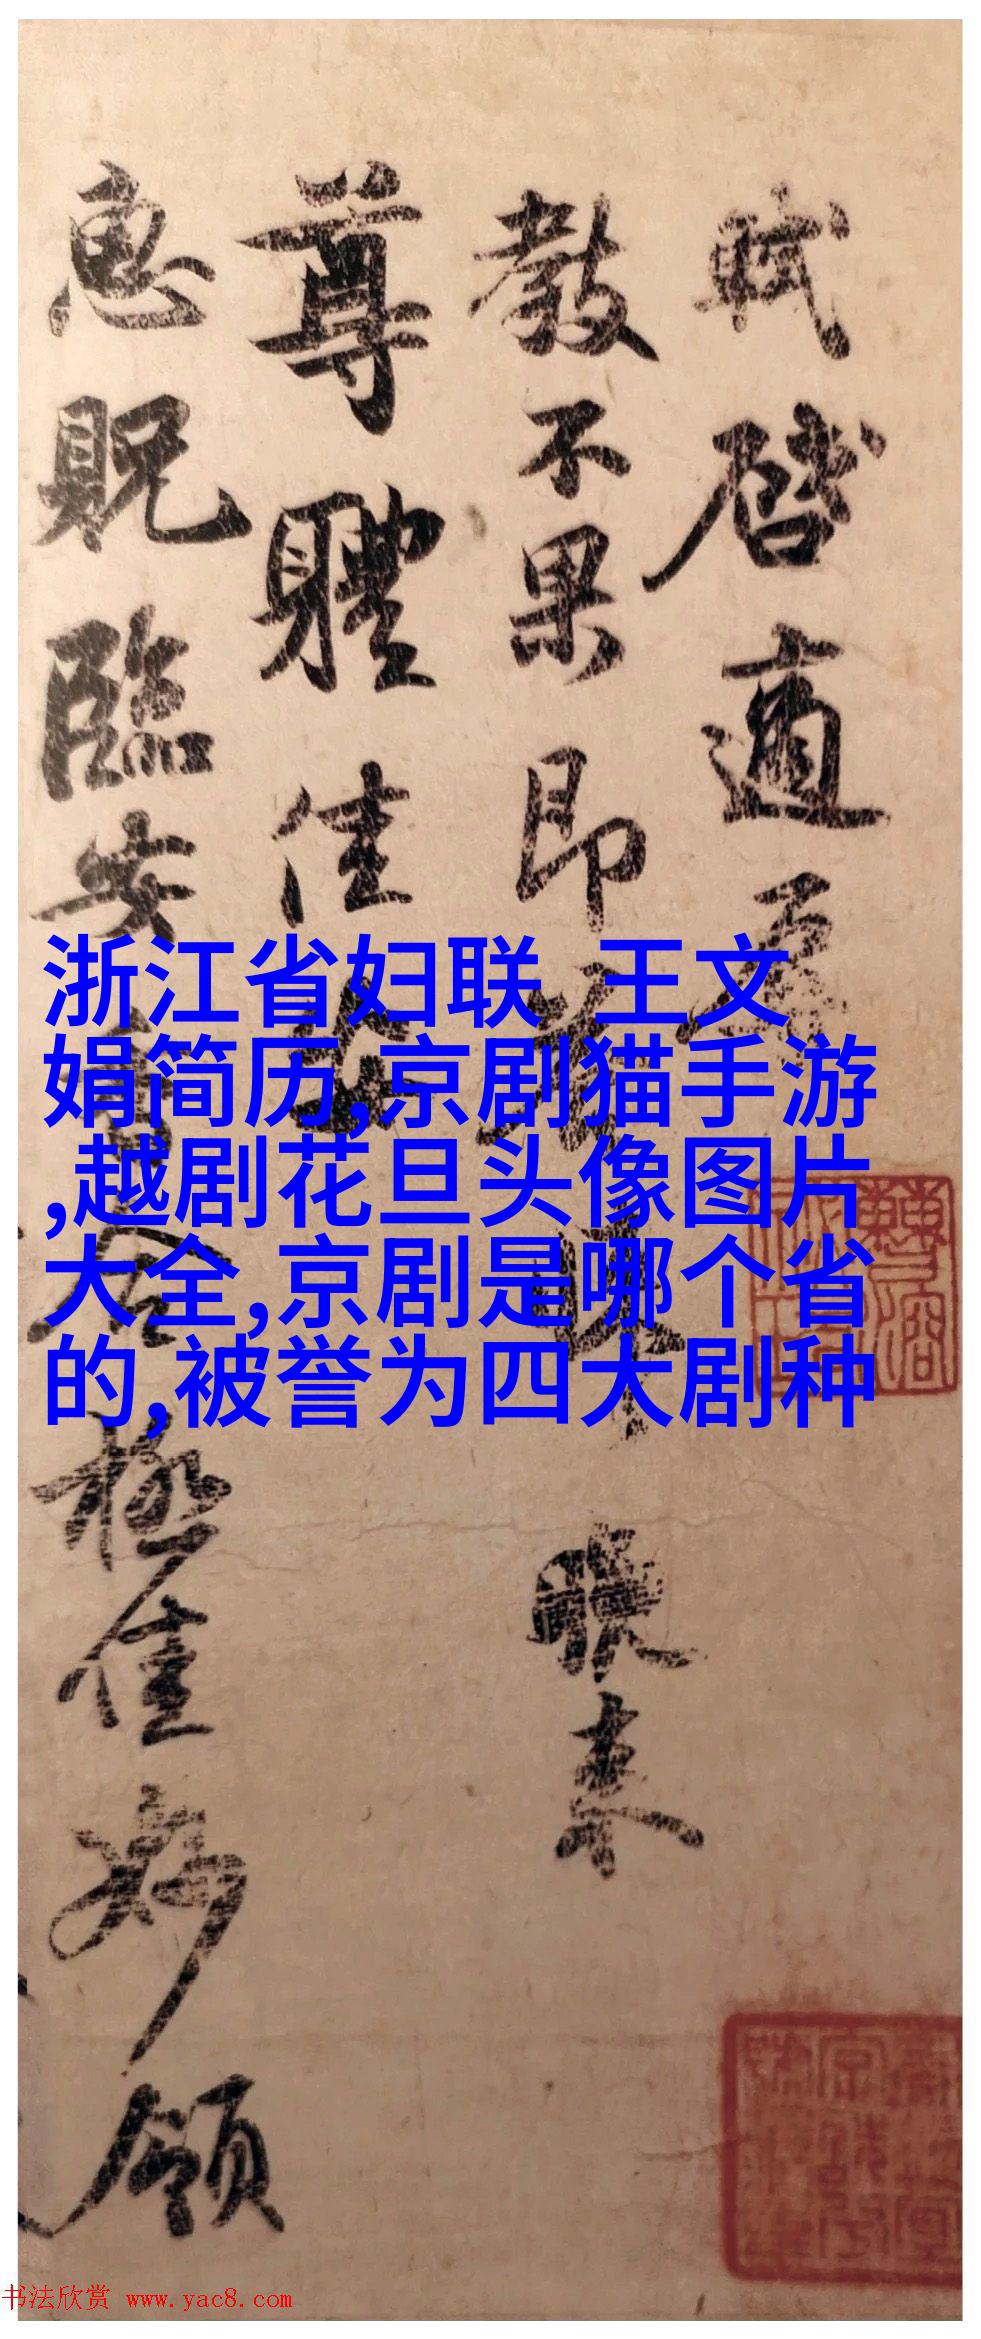 軾啓適辱
教不果即
晚来
尊體佳勝
惠貺臨安香合極佳妙領
浙江省妇联 王文
娟简历,京剧猫手游
,越剧花旦头像图片
大全,京剧是哪个省
的,被誉为四大剧种
书法欣赏 www.yac8.com